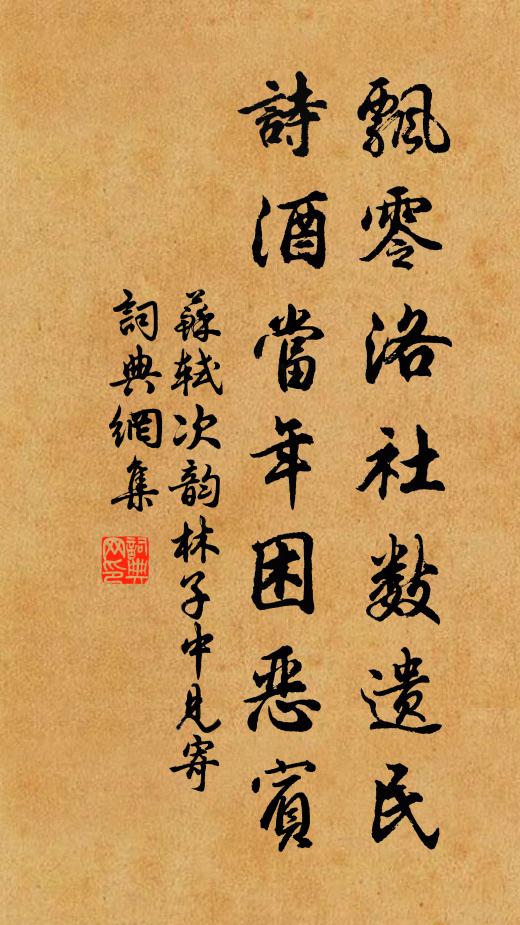 飄零洛社數遺民
詩酒當年困惡賓
蘇軾次韵林子中見寄
詞典網集
詞典网印